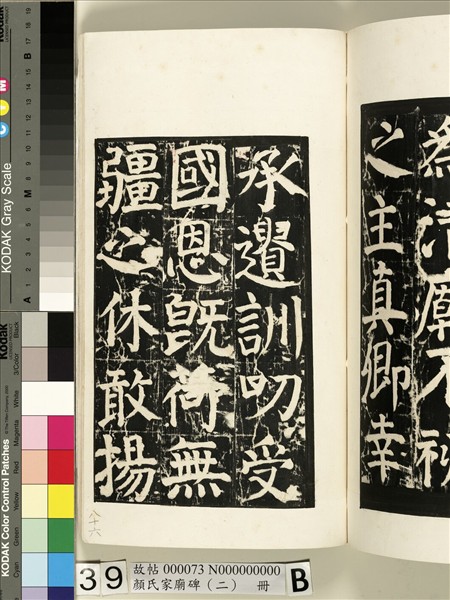 為清廟不祧
之主真卿幸
承遺訓叨受
國恩既荷無
疆之休敢揚
八十六
39
故帖 000073 N000000000
顏氏家廟碑（二） 冊
B
KODAK Gray Scale
C M
A 1 2 3 4 5 6 M 8 9 10 11 12 13 14 15 B 17 18 19
Kodak
KODAK Color Control Patches
Blue Cyan Green Yellow Red Magenta White 3/Color Black